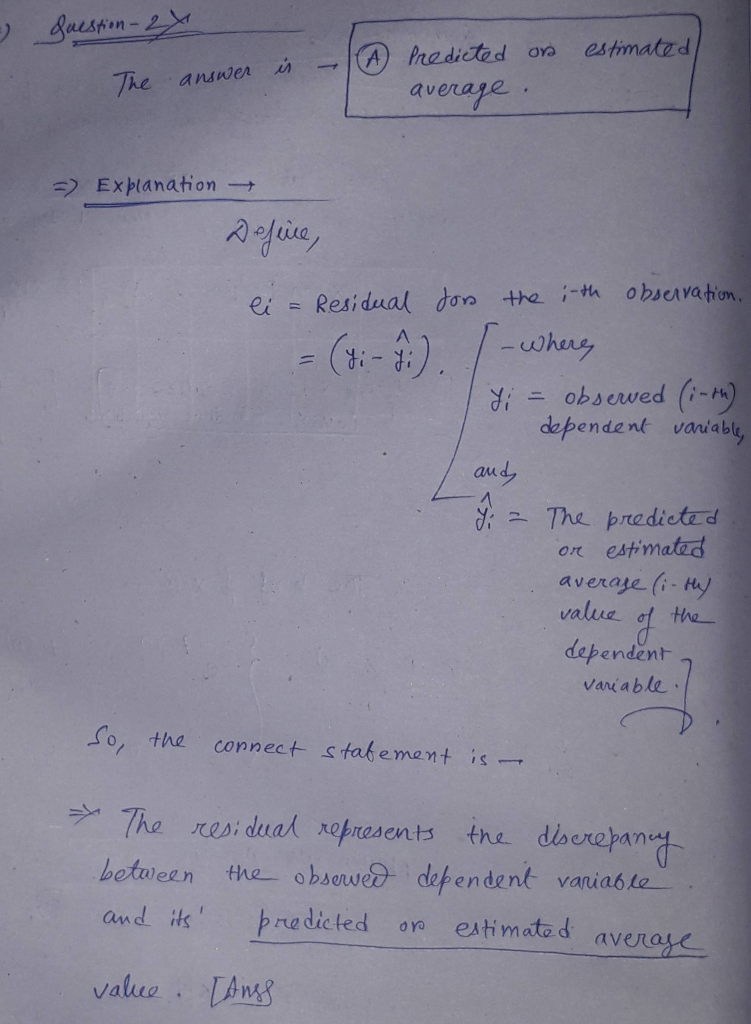 Question-2
The answer is → (A) Predicted or estimated
average.
=) Explanation →
Define,
ei = Residual for the i-th observation.
= (yi - ŷi). [ - where,
yi = observed (i-th)
dependent variable,
and,
ŷi = The predicted
or estimated
average (i-th)
value of the
dependent
variable. ].
So, the correct statement is →
=> The residual represents the discrepancy
between the observed dependent variable
and its' predicted or estimated average
value. [Ans]